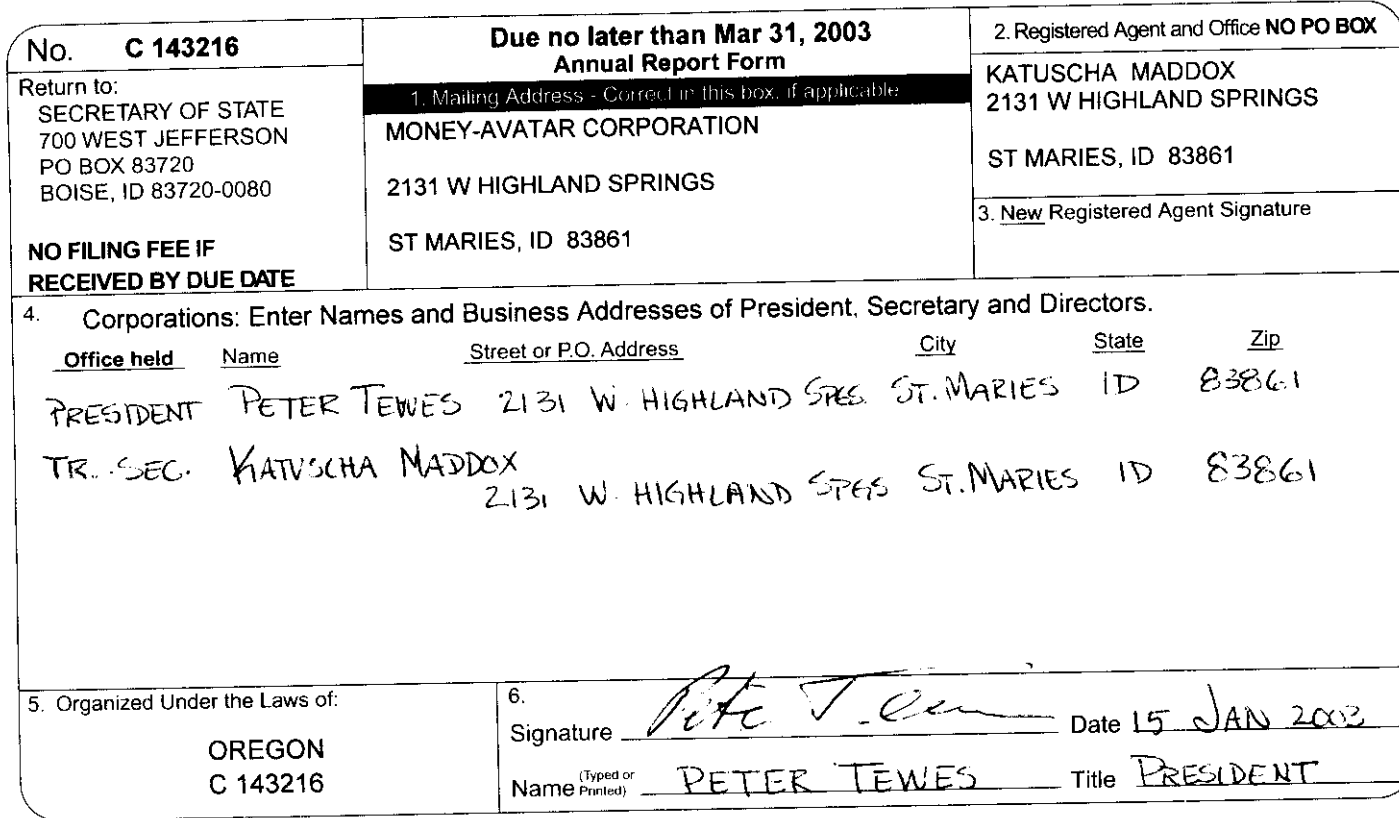 No. C 143216
Return to:
SECRETARY OF STATE
700 WEST JEFFERSON
PO BOX 83720
BOISE, ID 83720-0080
NO FILING FEE IF
RECEIVED BY DUE DATE
Due no later than Mar 31, 2003
Annual Report Form
1. Mailing Address - Correct in this box, if applicable
MONEY-AVATAR CORPORATION
2131 W HIGHLAND SPRINGS
ST MARIES, ID 83861
2. Registered Agent and Office NO PO BOX
KATUSCHA MADDOX
2131 W HIGHLAND SPRINGS
ST MARIES, ID 83861
3. New Registered Agent Signature
4. Corporations: Enter Names and Business Addresses of President, Secretary and Directors.
Office held Name Street or P.O. Address City State Zip
PRESIDENT PETER TEWES 2131 W. HIGHLAND SPGS. ST. MARIES ID 83861
TR. SEC. KATUSCHA MADDOX
2131 W. HIGHLAND SPGS ST. MARIES ID 83861
5. Organized Under the Laws of:
OREGON
C 143216
6.
Signature Date 15 JAN 2003
Name (Typed or Printed) PETER TEWES Title PRESIDENT